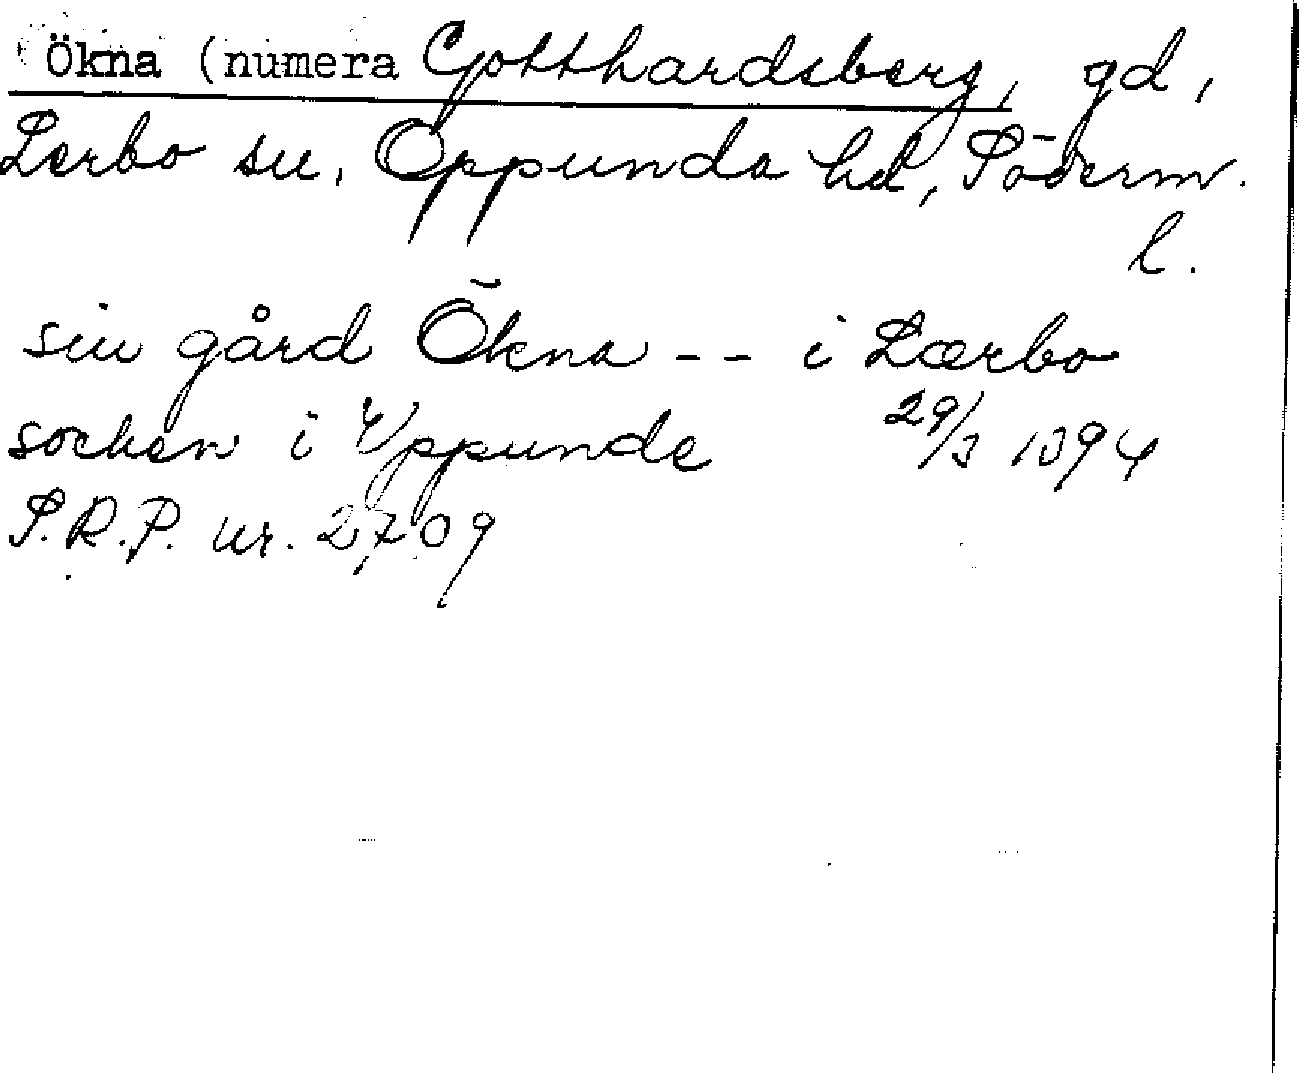 Ökna (numera Gotthardsberg, gd,
Lerbo sn, Oppunda hd, Söderm.
l.
sin gård Ökna -- i Lærbo
socken i Vppunde 29/3 1394
S.R.P. nr. 2709